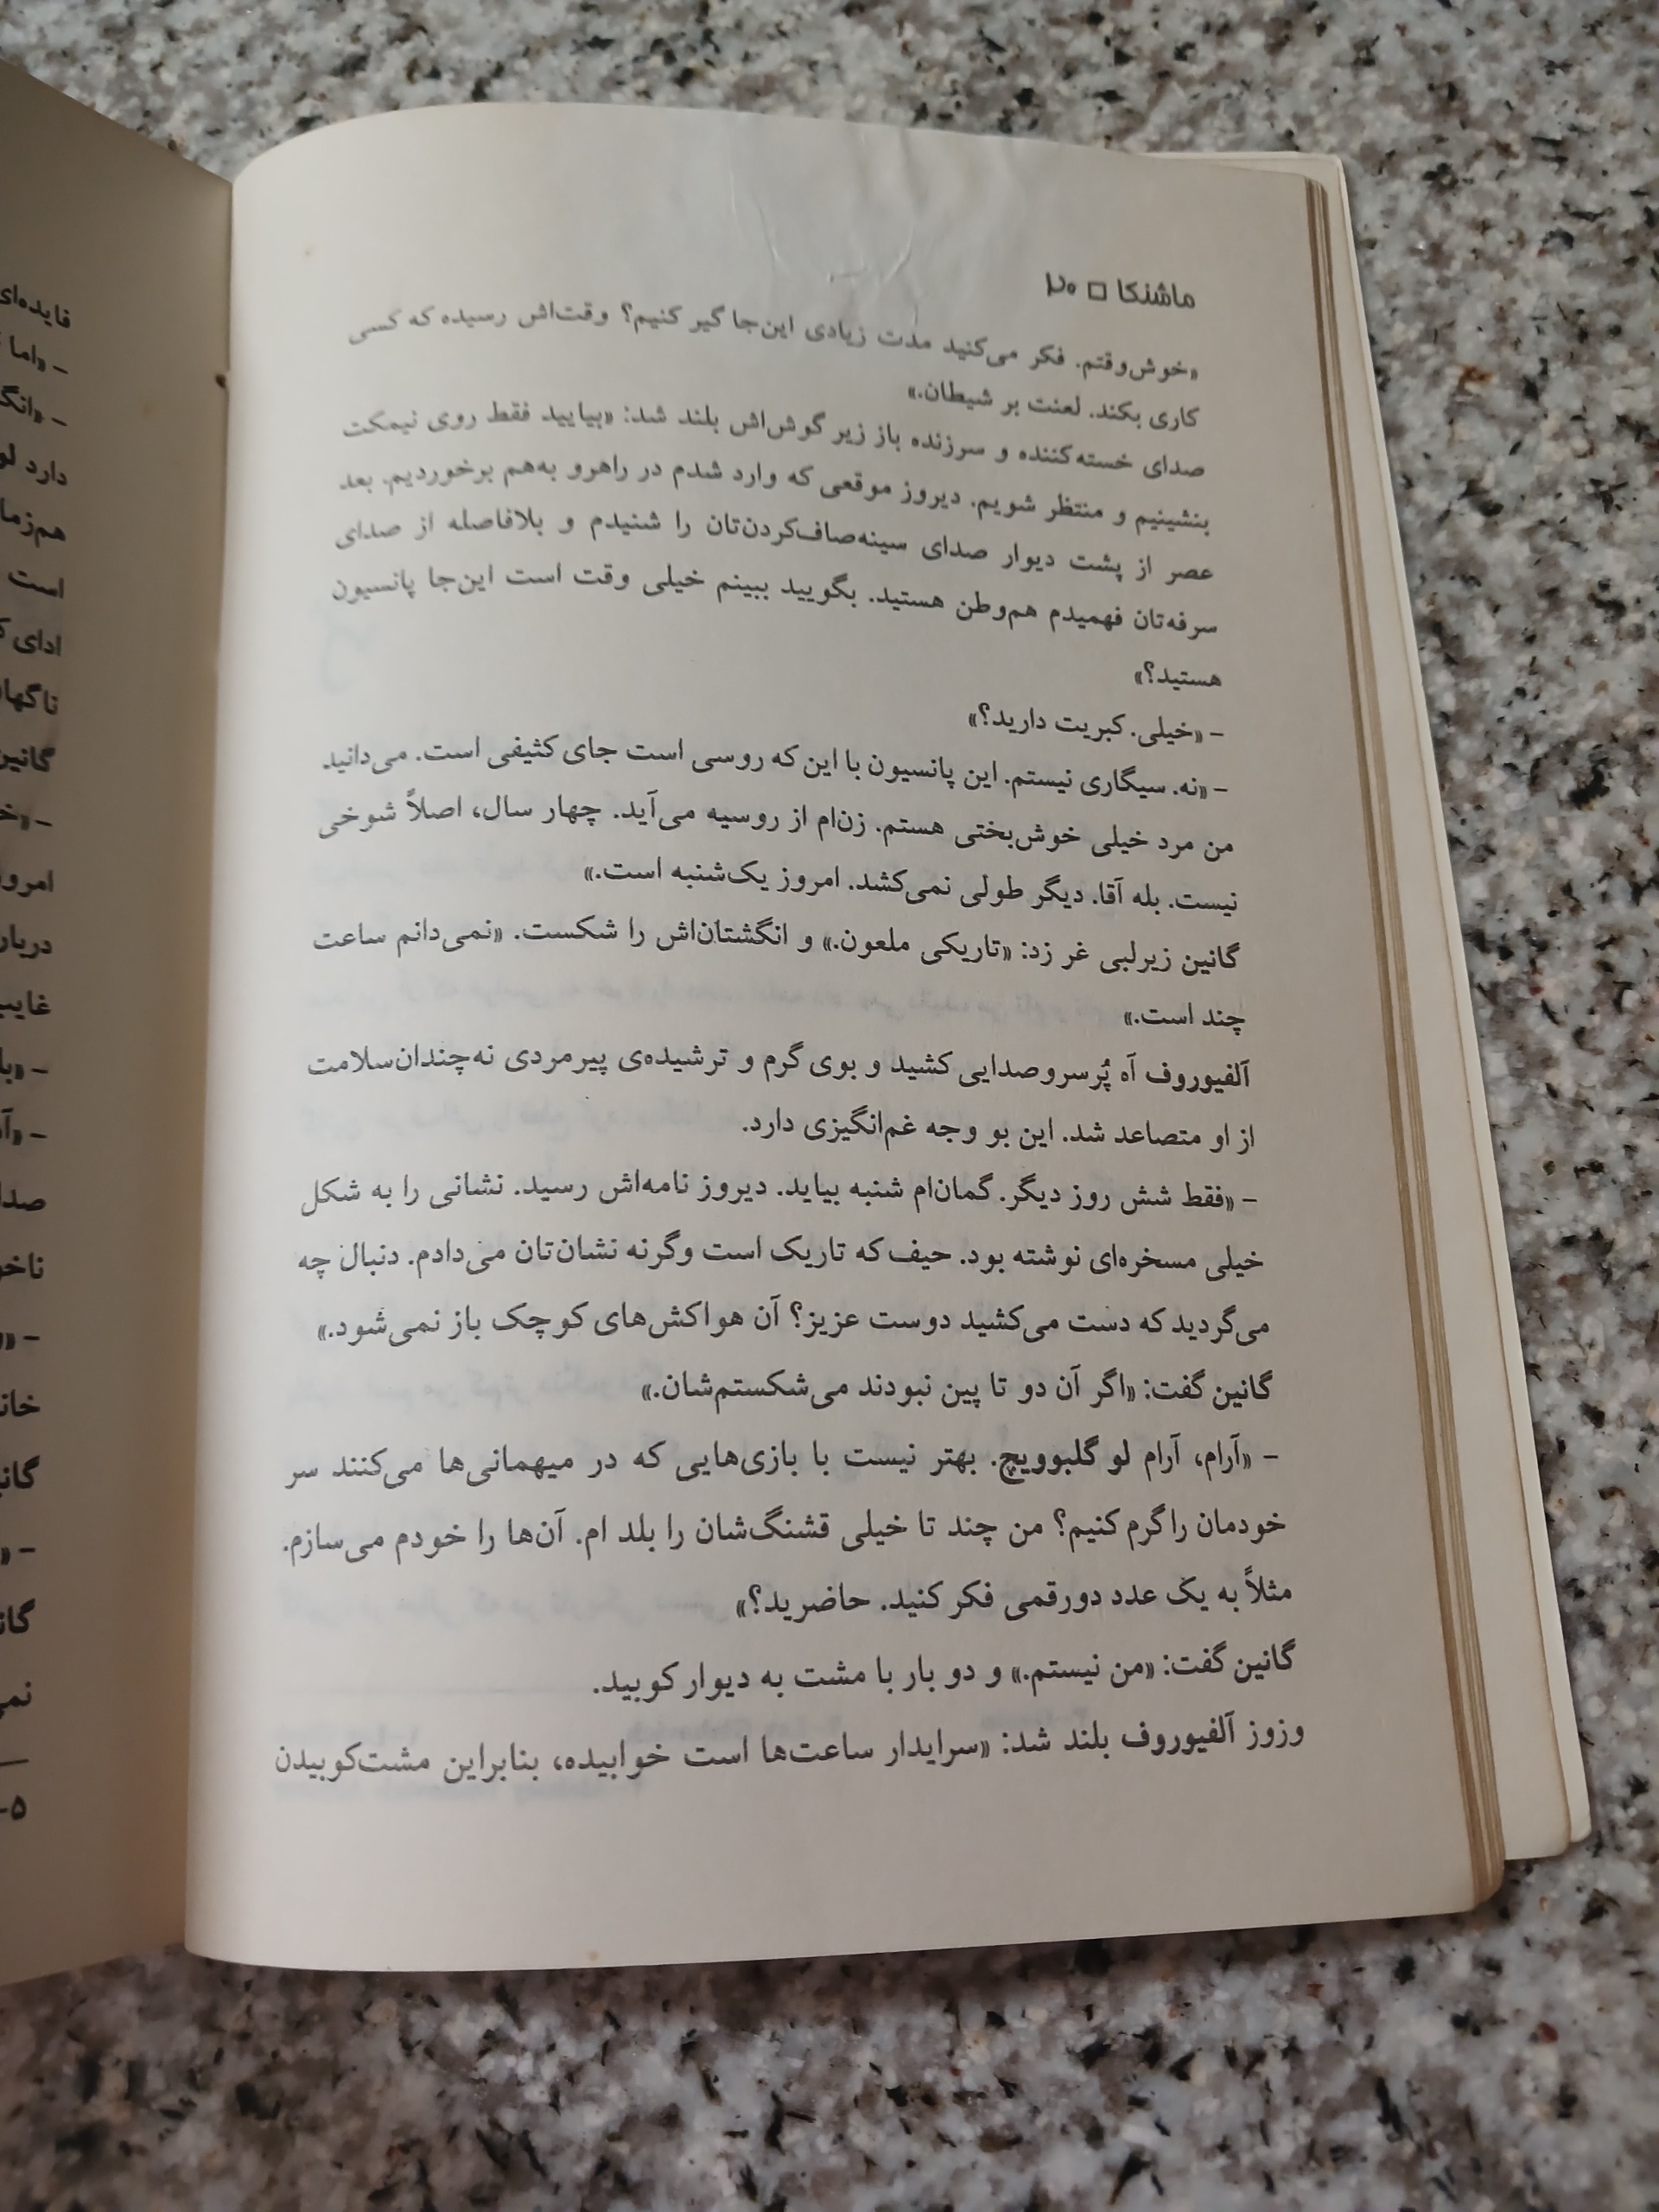 ماشنکا □ ۲۰
«خوش‌وقتم. فکر می‌کنید مدت زیادی این‌جا گیر کنیم؟ وقت‌اش رسیده که کسی
کاری بکند. لعنت بر شیطان.»
صدای خسته‌کننده و سرزنده باز زیر گوش‌اش بلند شد: «بیایید فقط روی نیمکت
بنشینیم و منتظر شویم. دیروز موقعی که وارد شدم در راهرو به‌هم برخوردیم. بعد
عصر از پشت دیوار صدای سینه‌صاف‌کردن‌تان را شنیدم و بلافاصله از صدای
سرفه‌تان فهمیدم هم‌وطن هستید. بگویید ببینم خیلی وقت است این‌جا پانسیون
هستید؟»
– «خیلی. کبریت دارید؟»
– «نه. سیگاری نیستم. این پانسیون با این که روسی است جای کثیفی است. می‌دانید
من مرد خیلی خوش‌بختی هستم. زن‌ام از روسیه می‌آید. چهار سال، اصلاً شوخی
نیست. بله آقا. دیگر طولی نمی‌کشد. امروز یک‌شنبه است.»
گانین زیرلبی غر زد: «تاریکی ملعون.» و انگشتان‌اش را شکست. «نمی‌دانم ساعت
چند است.»
آلفیوروف آه پُرسروصدایی کشید و بوی گرم و ترشیده‌ی پیرمردی نه‌چندان‌سلامت
از او متصاعد شد. این بو وجه غم‌انگیزی دارد.
– «فقط شش روز دیگر. گمان‌ام شنبه بیاید. دیروز نامه‌اش رسید. نشانی را به شکل
خیلی مسخره‌ای نوشته بود. حیف که تاریک است وگرنه نشان‌تان می‌دادم. دنبال چه
می‌گردید که دست می‌کشید دوست عزیز؟ آن هواکش‌های کوچک باز نمی‌شود.»
گانین گفت: «اگر آن دو تا پین نبودند می‌شکستم‌شان.»
– «آرام، آرام لو گلبوویچ. بهتر نیست با بازی‌هایی که در میهمانی‌ها می‌کنند سر
خودمان را گرم کنیم؟ من چند تا خیلی قشنگ‌شان را بلد ام. آن‌ها را خودم می‌سازم.
مثلاً به یک عدد دورقمی فکر کنید. حاضرید؟»
گانین گفت: «من نیستم.» و دو بار با مشت به دیوار کوبید.
وزوز آلفیوروف بلند شد: «سرایدار ساعت‌ها است خوابیده، بنابراین مشت‌کوبیدن